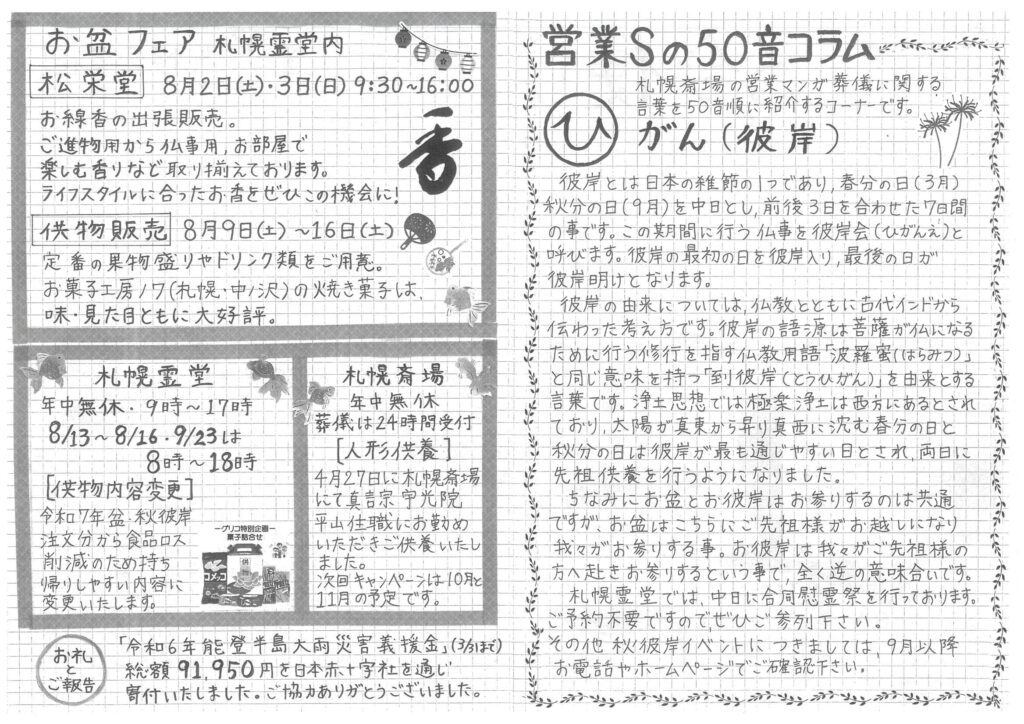 お盆フェア 札幌霊堂内
松栄堂 8月2日(土)・3日(日) 9:30～16:00
お線香の出張販売。
ご進物用から仏事用,お部屋で
楽しむ香りなど取り揃えております。
ライフスタイルに合ったお香をぜひこの機会に!
香
供物販売 8月9日(土)～16日(土)
定番の果物盛りやドリンク類をご用意。
お菓子工房ノワ(札幌・中ノ沢)の焼き菓子は,
味・見た目ともに大好評。
札幌霊堂
年中無休・9時～17時
8/13～8/16・9/23は
8時～18時
[供物内容変更]
令和7年盆・秋彼岸
注文分から食品ロス
削減のため持ち
帰りしやすい内容に
変更いたします。
―グリコ特別企画―
菓子詰合せ
コメッコ
札幌斎場
年中無休
葬儀は24時間受付
[人形供養]
4月27日に札幌斎場
にて真言宗宇光院
平山住職にお勤め
いただきご供養いたし
ました。
次回キャンペーンは10月と
11月の予定です。
お札
と
ご報告
「令和6年能登半島大雨災害義援金」(3/31まで)
総額91,950円を日本赤十字社を通じ
寄付いたしました。ご協力ありがとうございました。
営業Sの50音コラム
札幌斎場の営業マンが葬儀に関する
言葉を50音順に紹介するコーナーです。
ひ がん(彼岸)
彼岸とは日本の雑節の1つであり,春分の日(3月)
秋分の日(9月)を中日とし,前後3日を合わせた7日間
の事です。この期間に行う仏事を彼岸会(ひがんえ)と
呼びます。彼岸の最初の日を彼岸入り,最後の日が
彼岸明けとなります。
彼岸の由来については,仏教とともに古代インドから
伝わった考え方です。彼岸の語源は菩薩が仏になる
ために行う修行を指す仏教用語「波羅蜜(はらみつ)」
と同じ意味を持つ「到彼岸(とうひがん)」を由来とする
言葉です。浄土思想では極楽浄土は西方にあるとされ
ており,太陽が真東から昇り真西に沈む春分の日と
秋分の日は彼岸が最も通じやすい日とされ,両日に
先祖供養を行うようになりました。
ちなみにお盆とお彼岸はお参りするのは共通
ですが,お盆はこちらにご先祖様がお越しになり
我々がお参りする事。お彼岸は我々がご先祖様の
方へ赴きお参りするという事で,全く逆の意味合いです。
札幌霊堂では,中日に合同慰霊祭を行っております。
ご予約不要ですので,ぜひご参列下さい。
その他 秋彼岸イベントにつきましては,9月以降
お電話やホームページでご確認下さい。